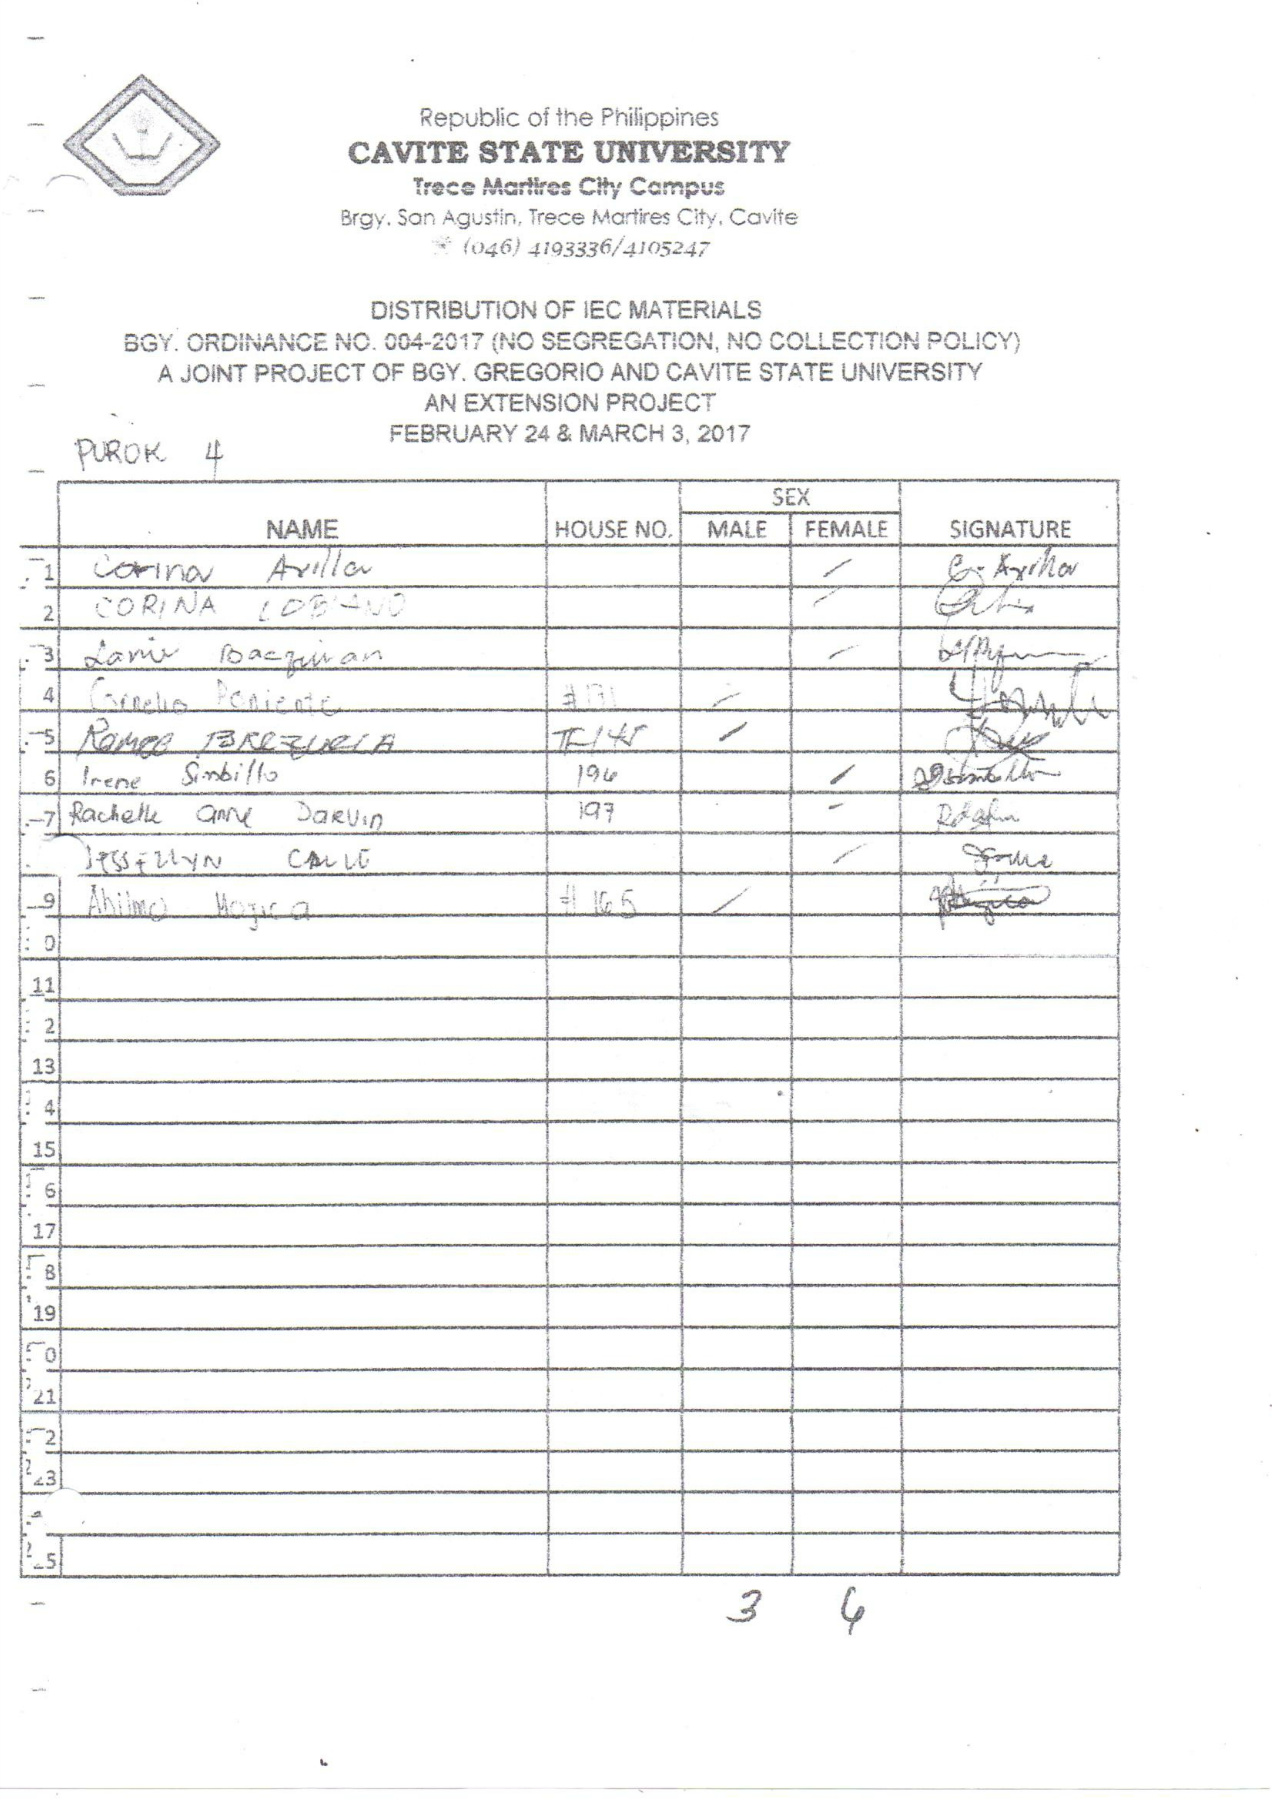 Republic of the Philippines
CAVITE STATE UNIVERSITY
Trece Martires City Campus
Brgy. San Agustin, Trece Martires City, Cavite
(046) 4193336/4105247
DISTRIBUTION OF IEC MATERIALS
BGY. ORDINANCE NO. 004-2017 (NO SEGREGATION, NO COLLECTION POLICY)
A JOINT PROJECT OF BGY. GREGORIO AND CAVITE STATE UNIVERSITY
AN EXTENSION PROJECT
FEBRUARY 24 & MARCH 3, 2017
PUROK 4
SEX
NAME HOUSE NO. MALE FEMALE SIGNATURE
1 Corina Avilla
2 CORINA
3
4 Poniente #171
5 Romeo
6 Irene Simbillo 196
7 Rachelle Anne Darvin 197
JESSELLYN
9 Mojica # 165
0
11
2
13
4
15
6
17
8
19
0
21
2
23
5
3 6